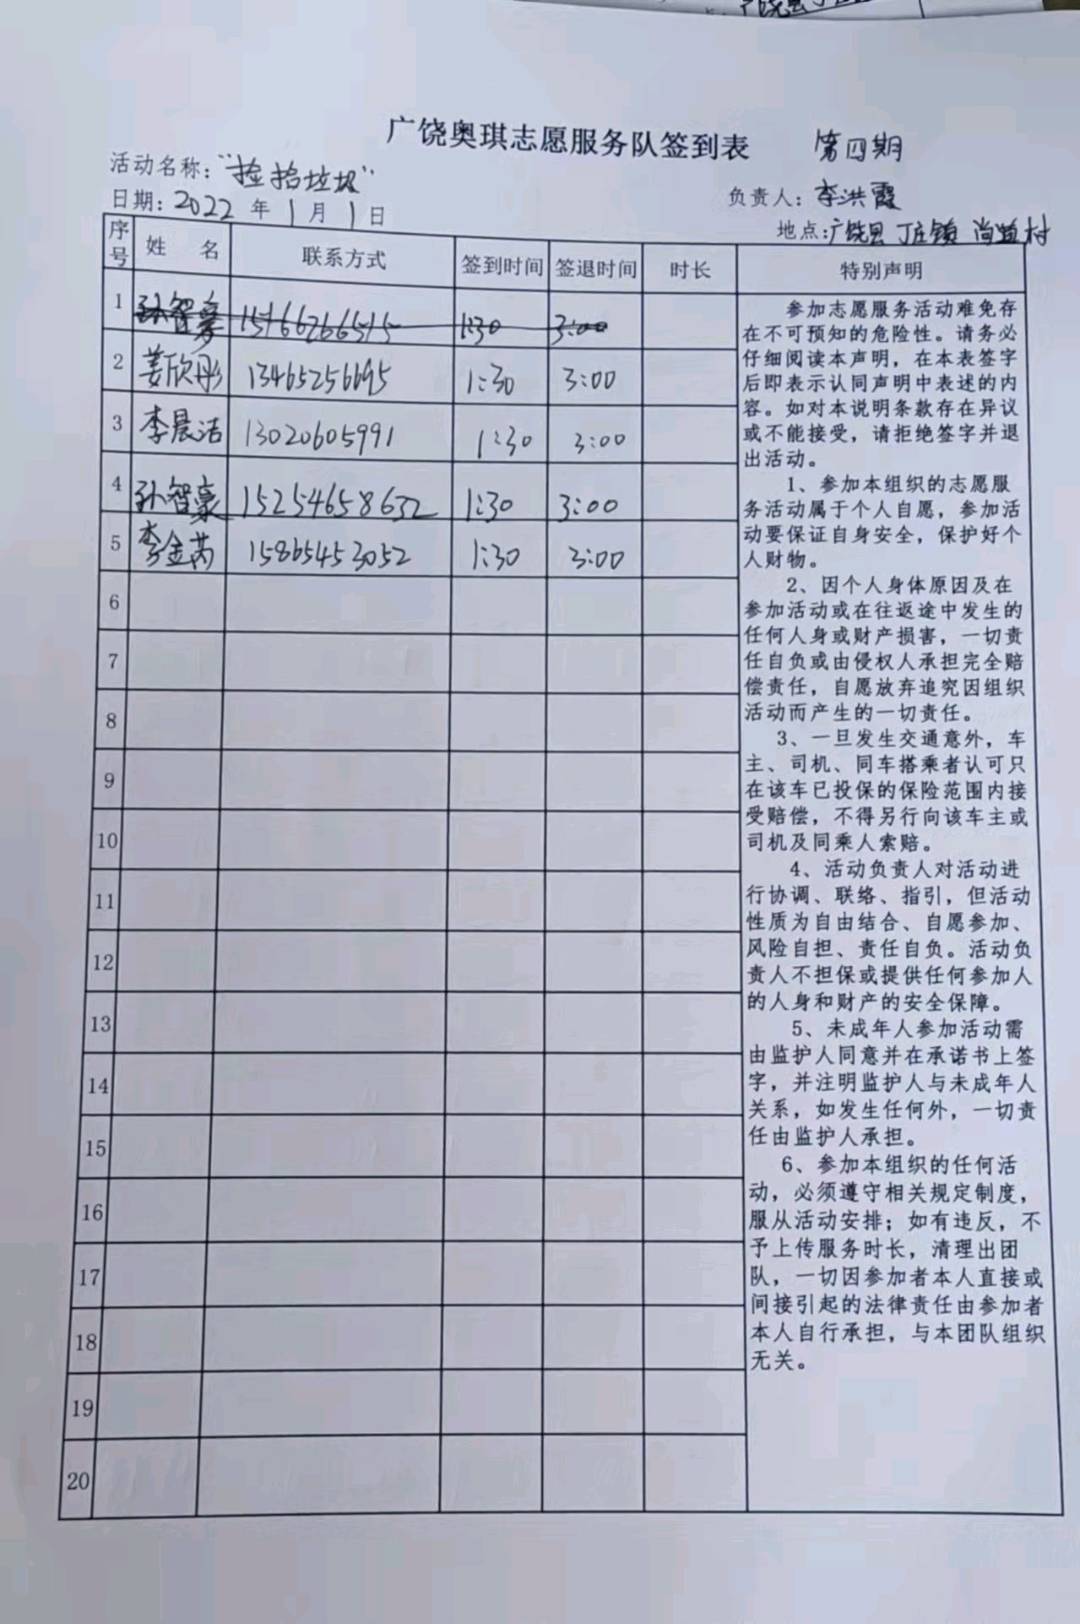 广饶奥琪志愿服务队签到表 第四期
活动名称:"捡拾垃圾"
日期:2022年1月1日
负责人:李洪霞
地点:广饶县丁庄镇尚道村
序号 姓 名 联系方式 签到时间 签退时间 时长 特别声明
1 孙智豪 15166266515 1:30 3:00
2 姜欣彤 13465256695 1:30 3:00
3 李晨洁 13020605991 1:30 3:00
4 孙智豪 15254658632 1:30 3:00
5 李金芮 15865453052 1:30 3:00
6
7
8
9
10
11
12
13
14
15
16
17
18
19
20
参加志愿服务活动难免存
在不可预知的危险性。请务必
仔细阅读本声明，在本表签字
后即表示认同声明中表述的内
容。如对本说明条款存在异议
或不能接受，请拒绝签字并退
出活动。
1、参加本组织的志愿服
务活动属于个人自愿，参加活
动要保证自身安全，保护好个
人财物。
2、因个人身体原因及在
参加活动或在往返途中发生的
任何人身或财产损害，一切责
任自负或由侵权人承担完全赔
偿责任，自愿放弃追究因组织
活动而产生的一切责任。
3、一旦发生交通意外，车
主、司机、同车搭乘者认可只
在该车已投保的保险范围内接
受赔偿，不得另行向该车主或
司机及同乘人索赔。
4、活动负责人对活动进
行协调、联络、指引，但活动
性质为自由结合、自愿参加、
风险自担、责任自负。活动负
责人不担保或提供任何参加人
的人身和财产的安全保障。
5、未成年人参加活动需
由监护人同意并在承诺书上签
字，并注明监护人与未成年人
关系，如发生任何外，一切责
任由监护人承担。
6、参加本组织的任何活
动，必须遵守相关规定制度，
服从活动安排；如有违反，不
予上传服务时长，清理出团
队，一切因参加者本人直接或
间接引起的法律责任由参加者
本人自行承担，与本团队组织
无关。